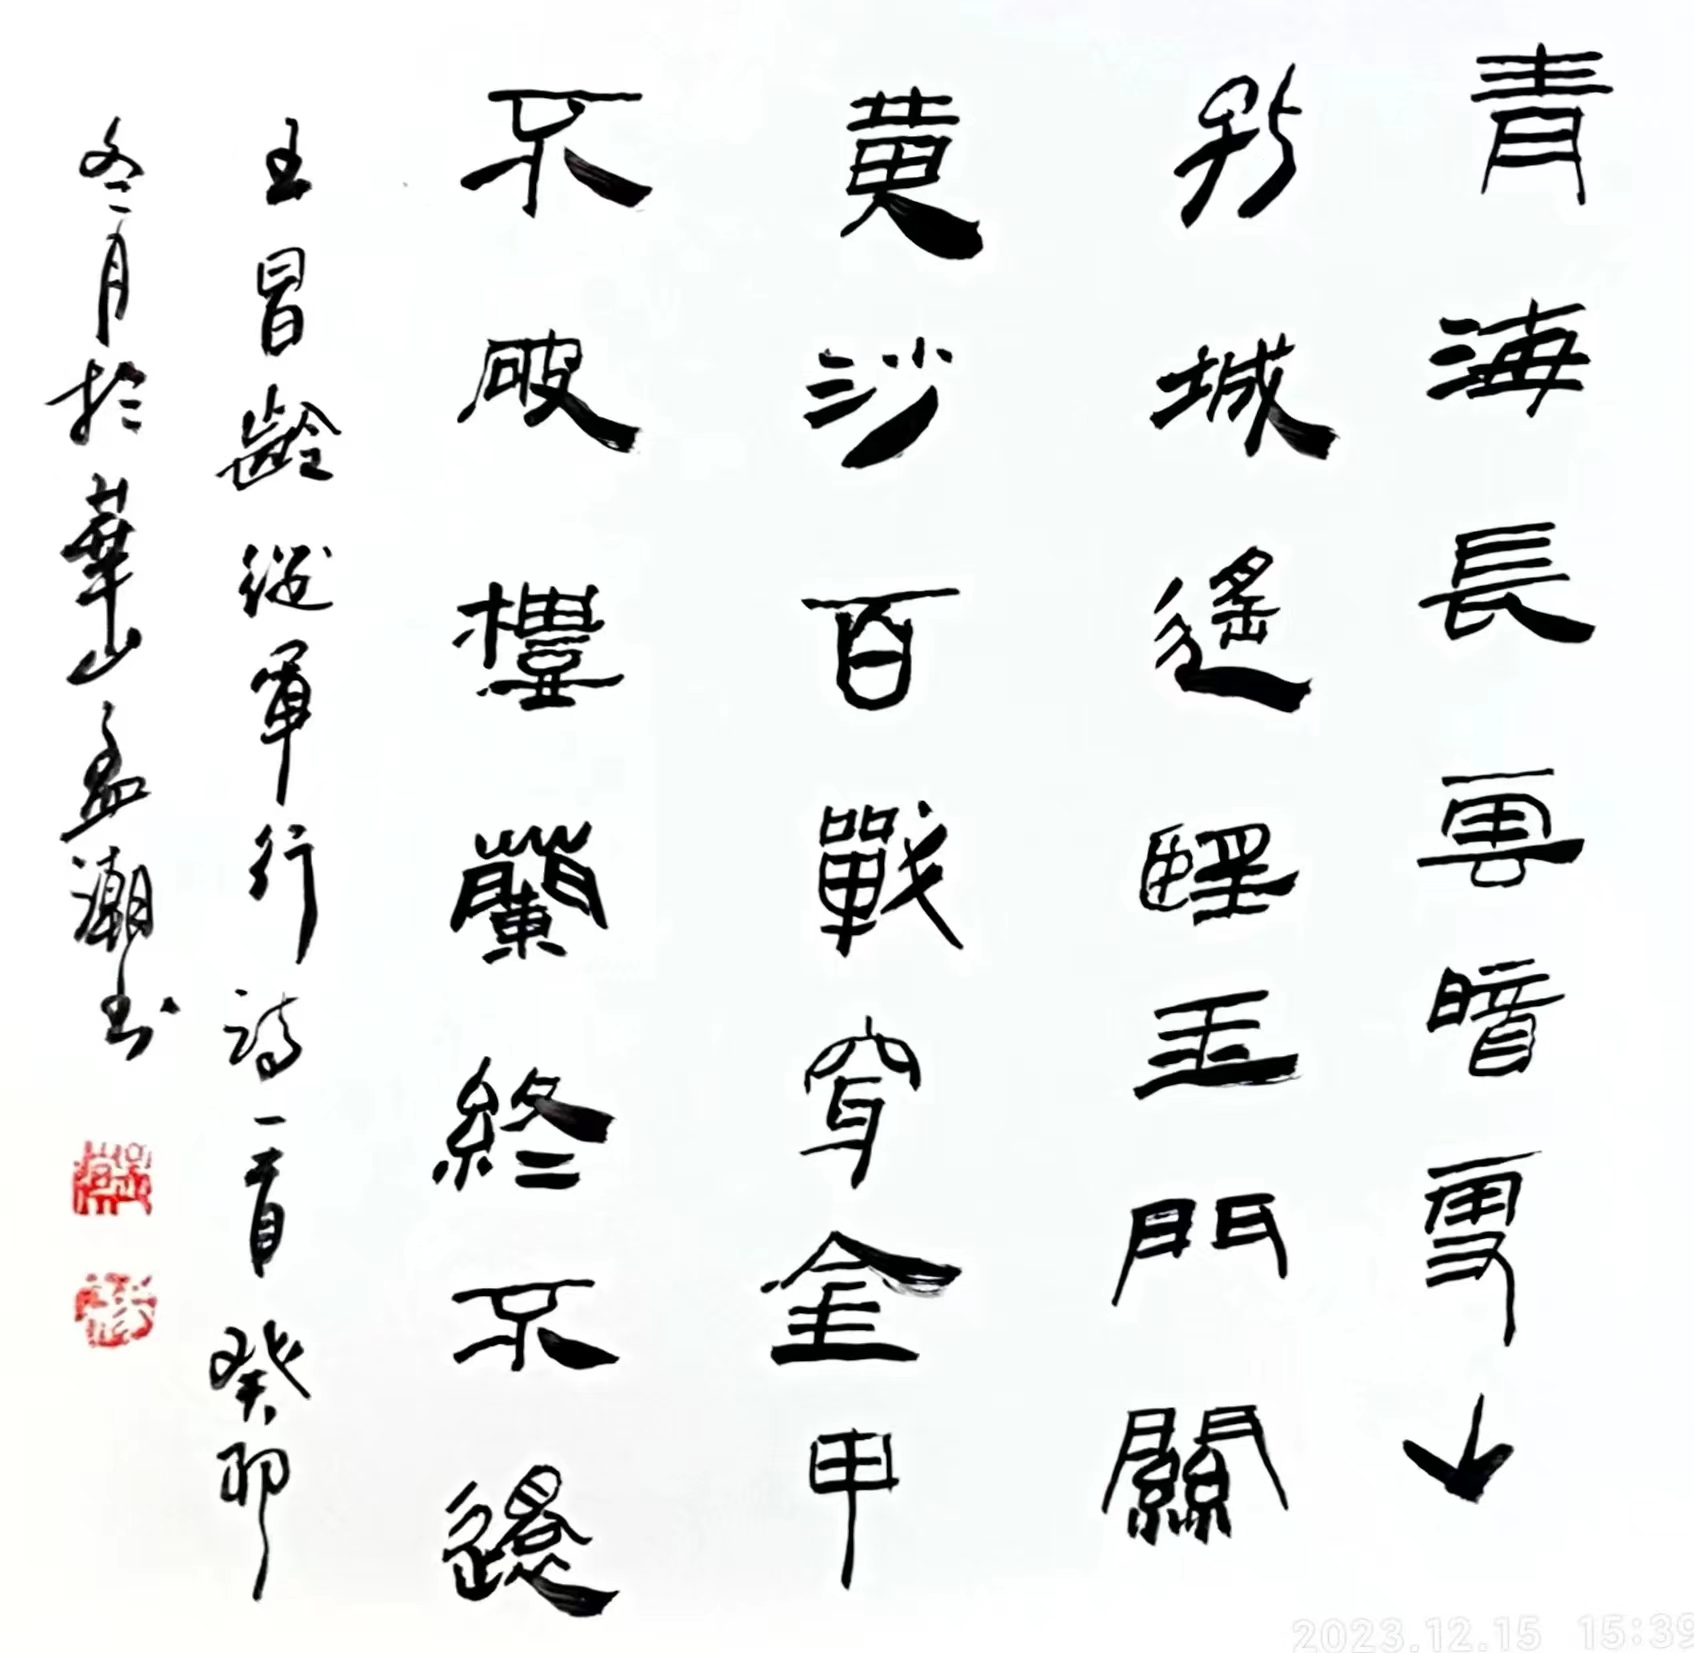 青海長雲暗雪山
孤城遙望玉門關
黃沙百戰穿金甲
不破樓蘭終不還
王昌齡從軍行詩一首癸卯
冬月於華山孟潮書
2023.12.15 15:39